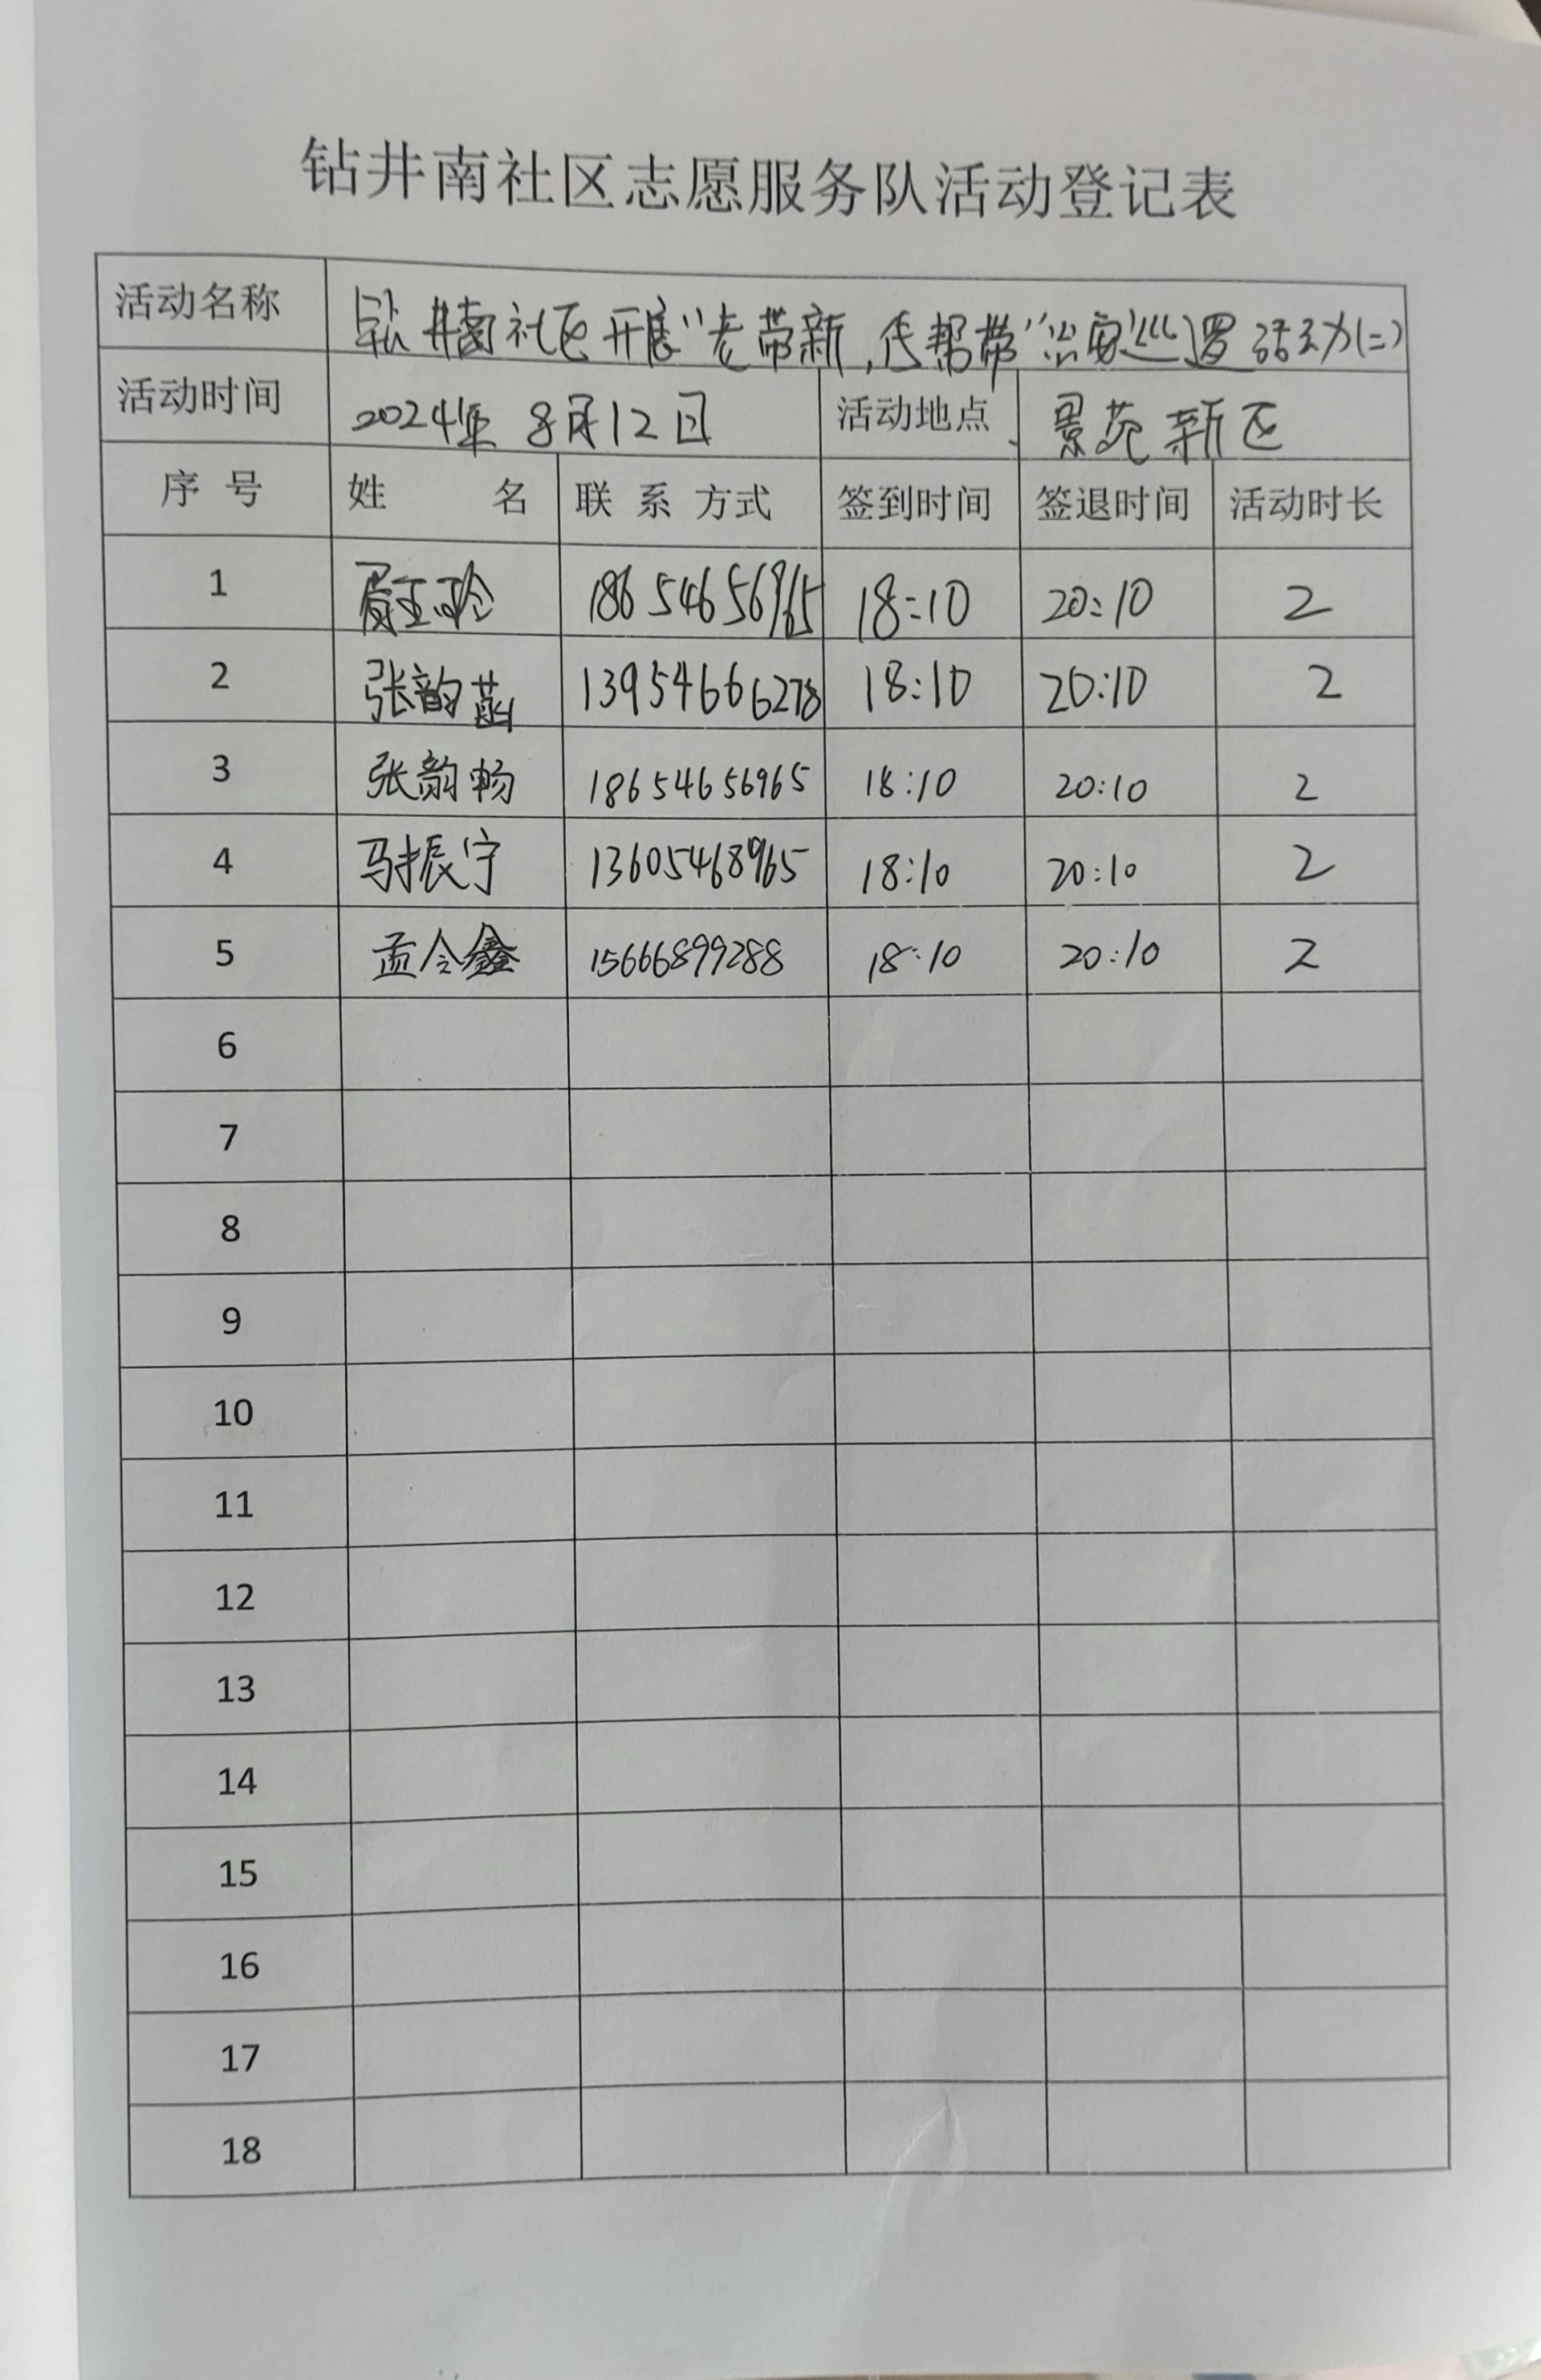 钻井南社区志愿服务队活动登记表
活动名称 钻井南社区开展“老带新,传帮带”治安巡逻活动(二)
活动时间 2024年8月12日 活动地点 景苑新区
序号 姓名 联系方式 签到时间 签退时间 活动时长
1 18654656965 18:10 20:10 2
2 张韵菡 13954666278 18:10 20:10 2
3 张韵畅 18654656965 18:10 20:10 2
4 马振宇 13605468965 18:10 20:10 2
5 孟令鑫 15666899288 18:10 20:10 2
6
7
8
9
10
11
12
13
14
15
16
17
18